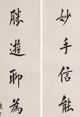 妙手信能
勝遊聊為